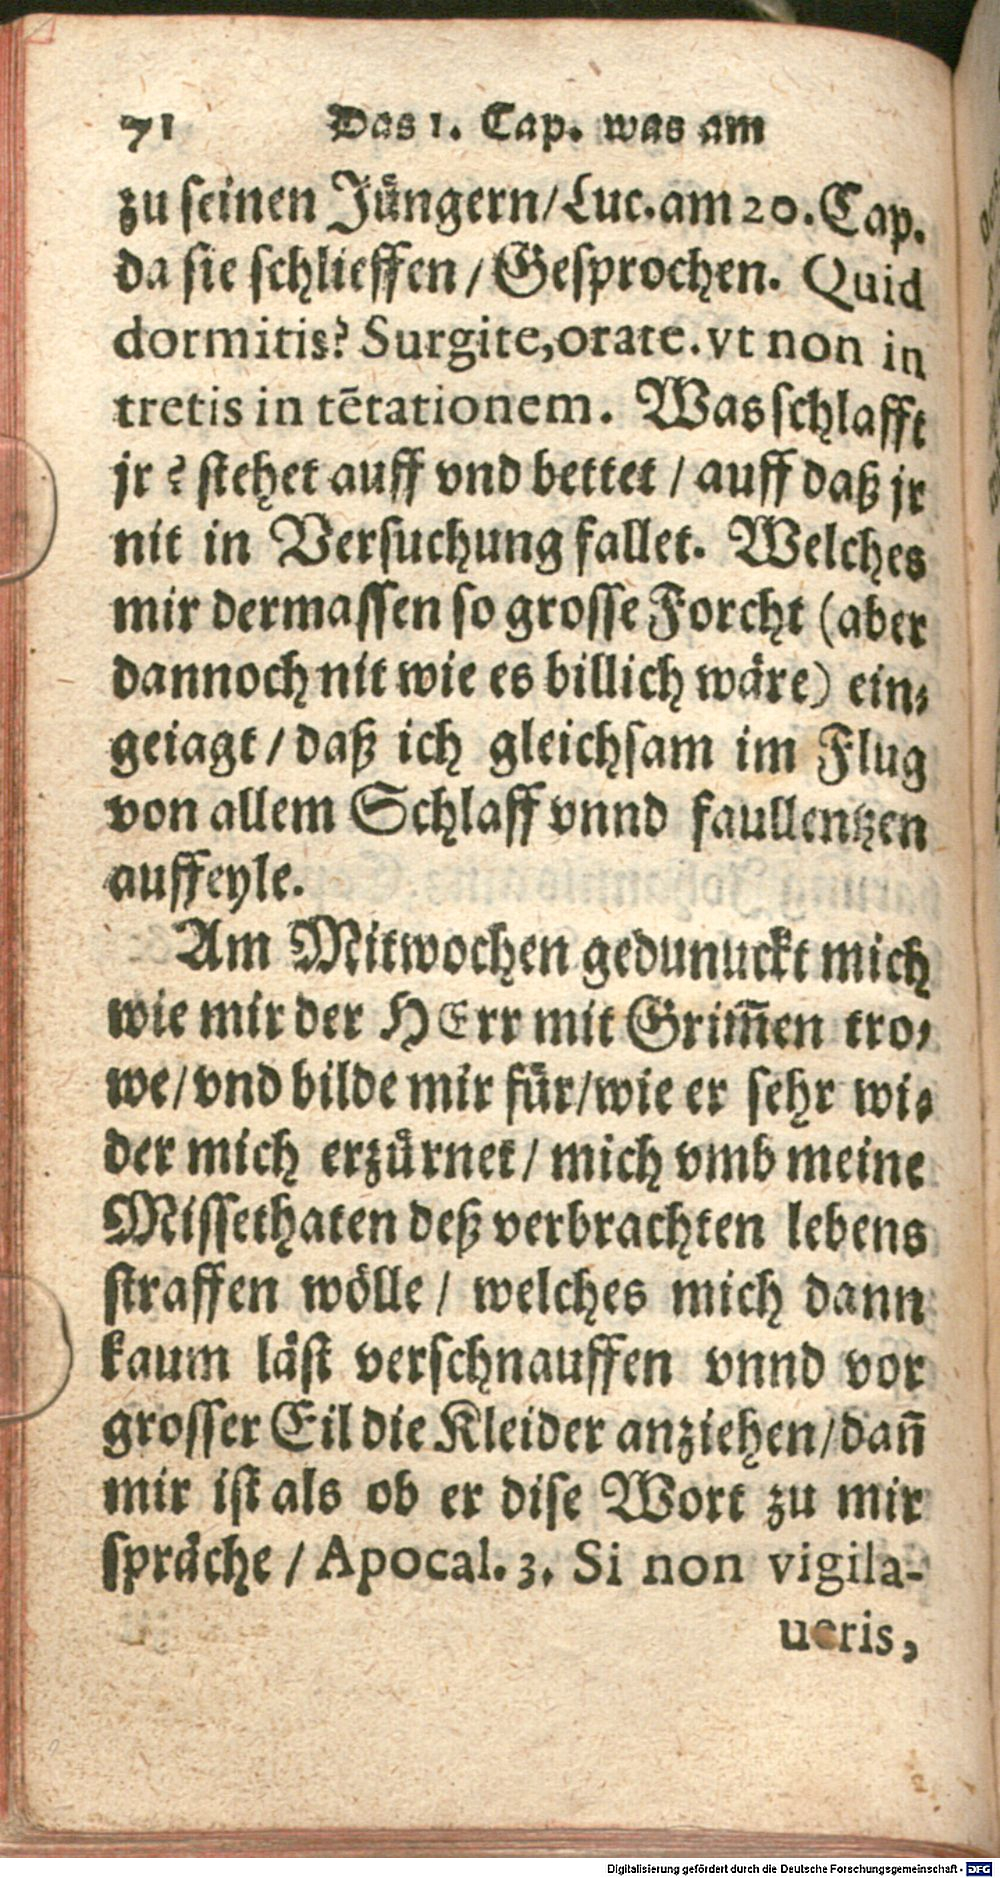 71 Das 1. Cap. was am
zu seinen Jüngern/Luc.am 20.Cap.
da sie schlieffen/Gesprochen. Quid
dormitis? Surgite,orate.vt non in
tretis in tētationem. Was schlafft
jr? stehet auff vnd bettet/auff daß jr
nit in Versuchung fallet. Welches
mir dermassen so grosse Forcht (aber
dannoch nit wie es billich wäre) ein⸗
geiagt/daß ich gleichsam im Flug
von allem Schlaff vnnd faullentzen
auffeyle.
Am Mitwochen gedunuckt mich
wie mir der HErr mit Grim̄en tro⸗
we/vnd bilde mir für/wie er sehr wi⸗
der mich erzürnet/mich vmb meine
Missethaten deß verbrachten lebens
straffen wölle/welches mich dann
kaum läst verschnauffen vnnd vor
grosser Eil die Kleider anziehen/dañ
mir ist als ob er dise Wort zu mir
spräche/Apocal.3. Si non vigila-
ueris,
Digitalisierung gefördert durch die Deutsche Forschungsgemeinschaft - DFG